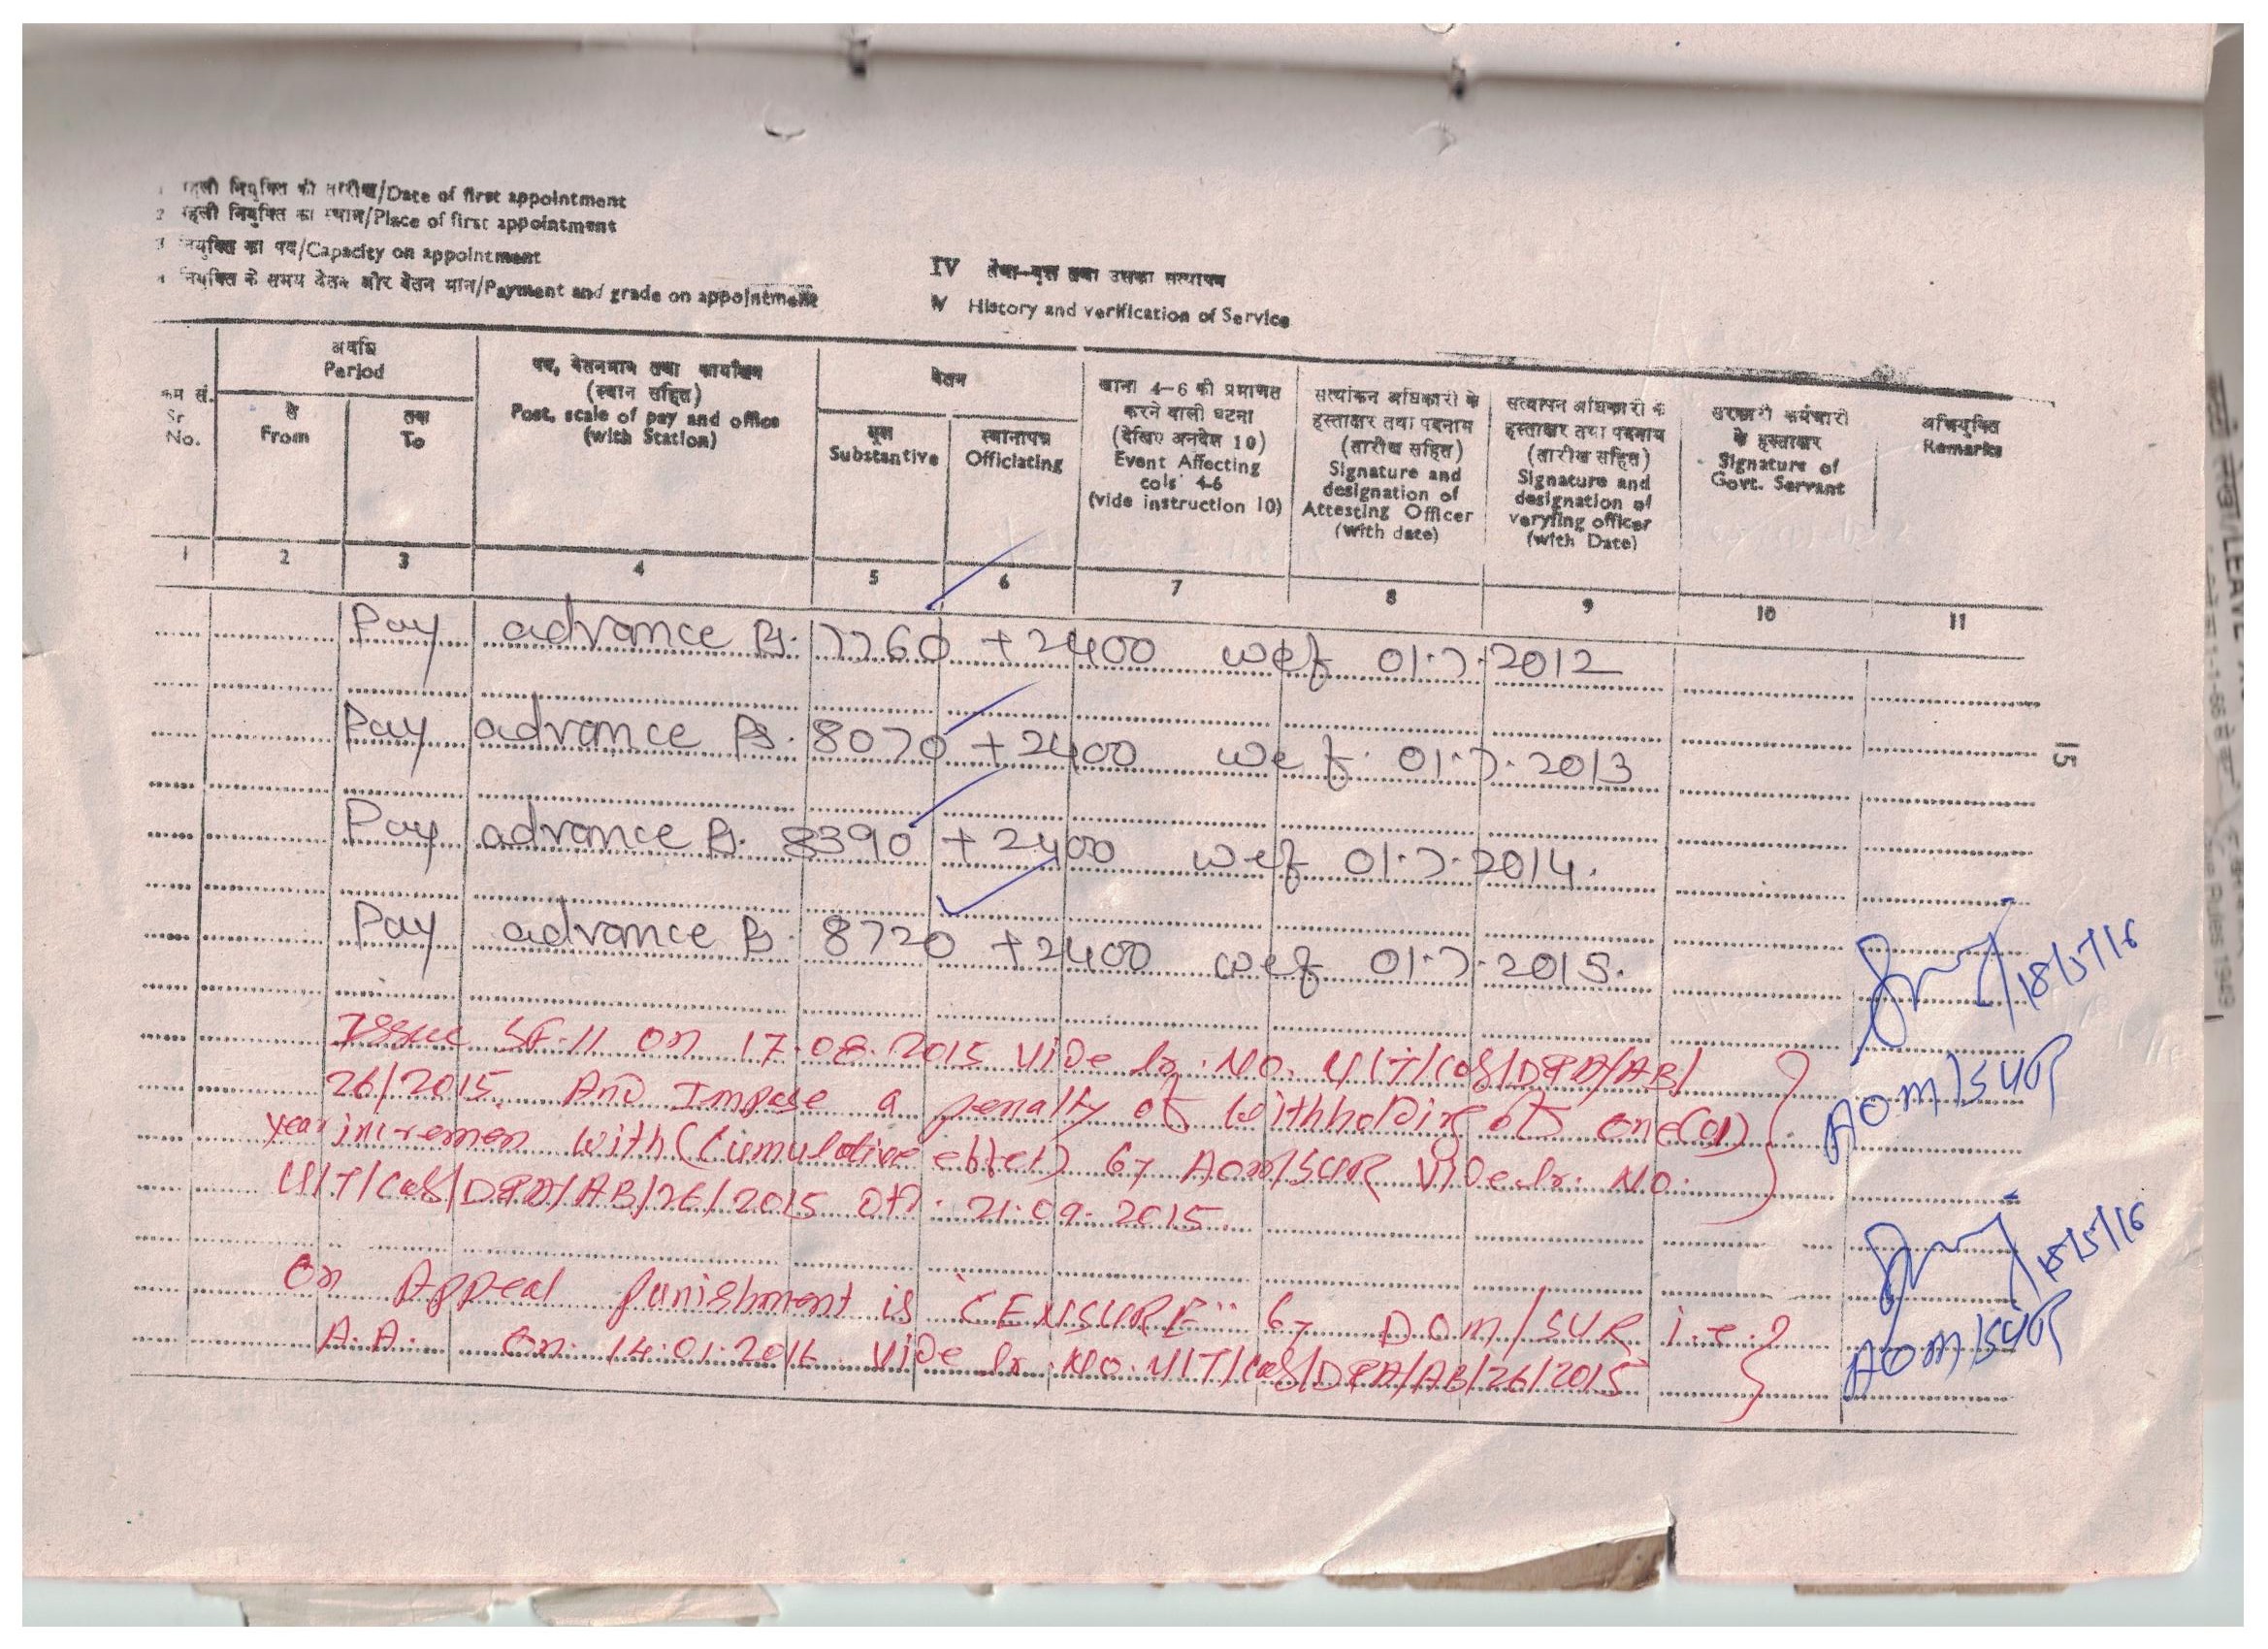 पहली नियुक्ति की तारीख/Date of first appointment
2 पहली नियुक्ति का स्थान/Place of first appointment
3 नियुक्ति का पद/Capacity on appointment
4 नियुक्ति के समय वेतन और वेतन मान/Payment and grade on appointment
IV सेवा-वृत्त तथा उसका सत्यापन
IV History and verification of Service
क्रम सं.
Sr
No.
अवधि
Period
से
From
तक
To
पद, वेतनमान तथा कार्यालय
(स्थान सहित)
Post, scale of pay and office
(with Station)
वेतन
मूल
Substantive
स्थानापन्न
Officiating
खाना 4-6 की प्रमाणत
करने वाली घटना
(देखिए अनदेश 10)
Event Affecting
cols 4-6
(vide instruction 10)
सत्यांकन अधिकारी के
हस्ताक्षर तथा पदनाम
(तारीख सहित)
Signature and
designation of
Attesting Officer
(with date)
सत्यापन अधिकारी के
हस्ताक्षर तथा पदनाम
(तारीख सहित)
Signature and
designation of
veryfing officer
(with Date)
सरकारी कर्मचारी
के हस्ताक्षर
Signature of
Govt. Servant
अभियुक्ति
Remarks
1 2 3 4 5 6 7 8 9 10 11
Pay advance Rs. 7760 + 2400 wef 01.7.2012
Pay advance Rs. 8070 + 2400 wef. 01.7.2013
Pay advance Rs. 8390 + 2400 wef 01.7.2014.
Pay advance Rs. 8720 + 2400 wef 01.7.2015.
Issue SF.11 on 17.08.2015 Vide lr. No. U/T/Cos/D&A/AB/
26/2015. And Impose a penalty of Withholding of one(01)
year incremen with (Cumulative effect) by AOM/SUR Vide lr. No.
U/T/Cos/D&A/AB/26/2015 Dt. 21.09.2015.
On Appeal punishment is "CENSURE" by DOM/SUR i.e.
A.A. on 14.01.2016 Vide lr. No. U/T/Cos/D&A/AB/26/2015
18/5/16
AOM/SUR
18/5/16
AOM/SUR
15